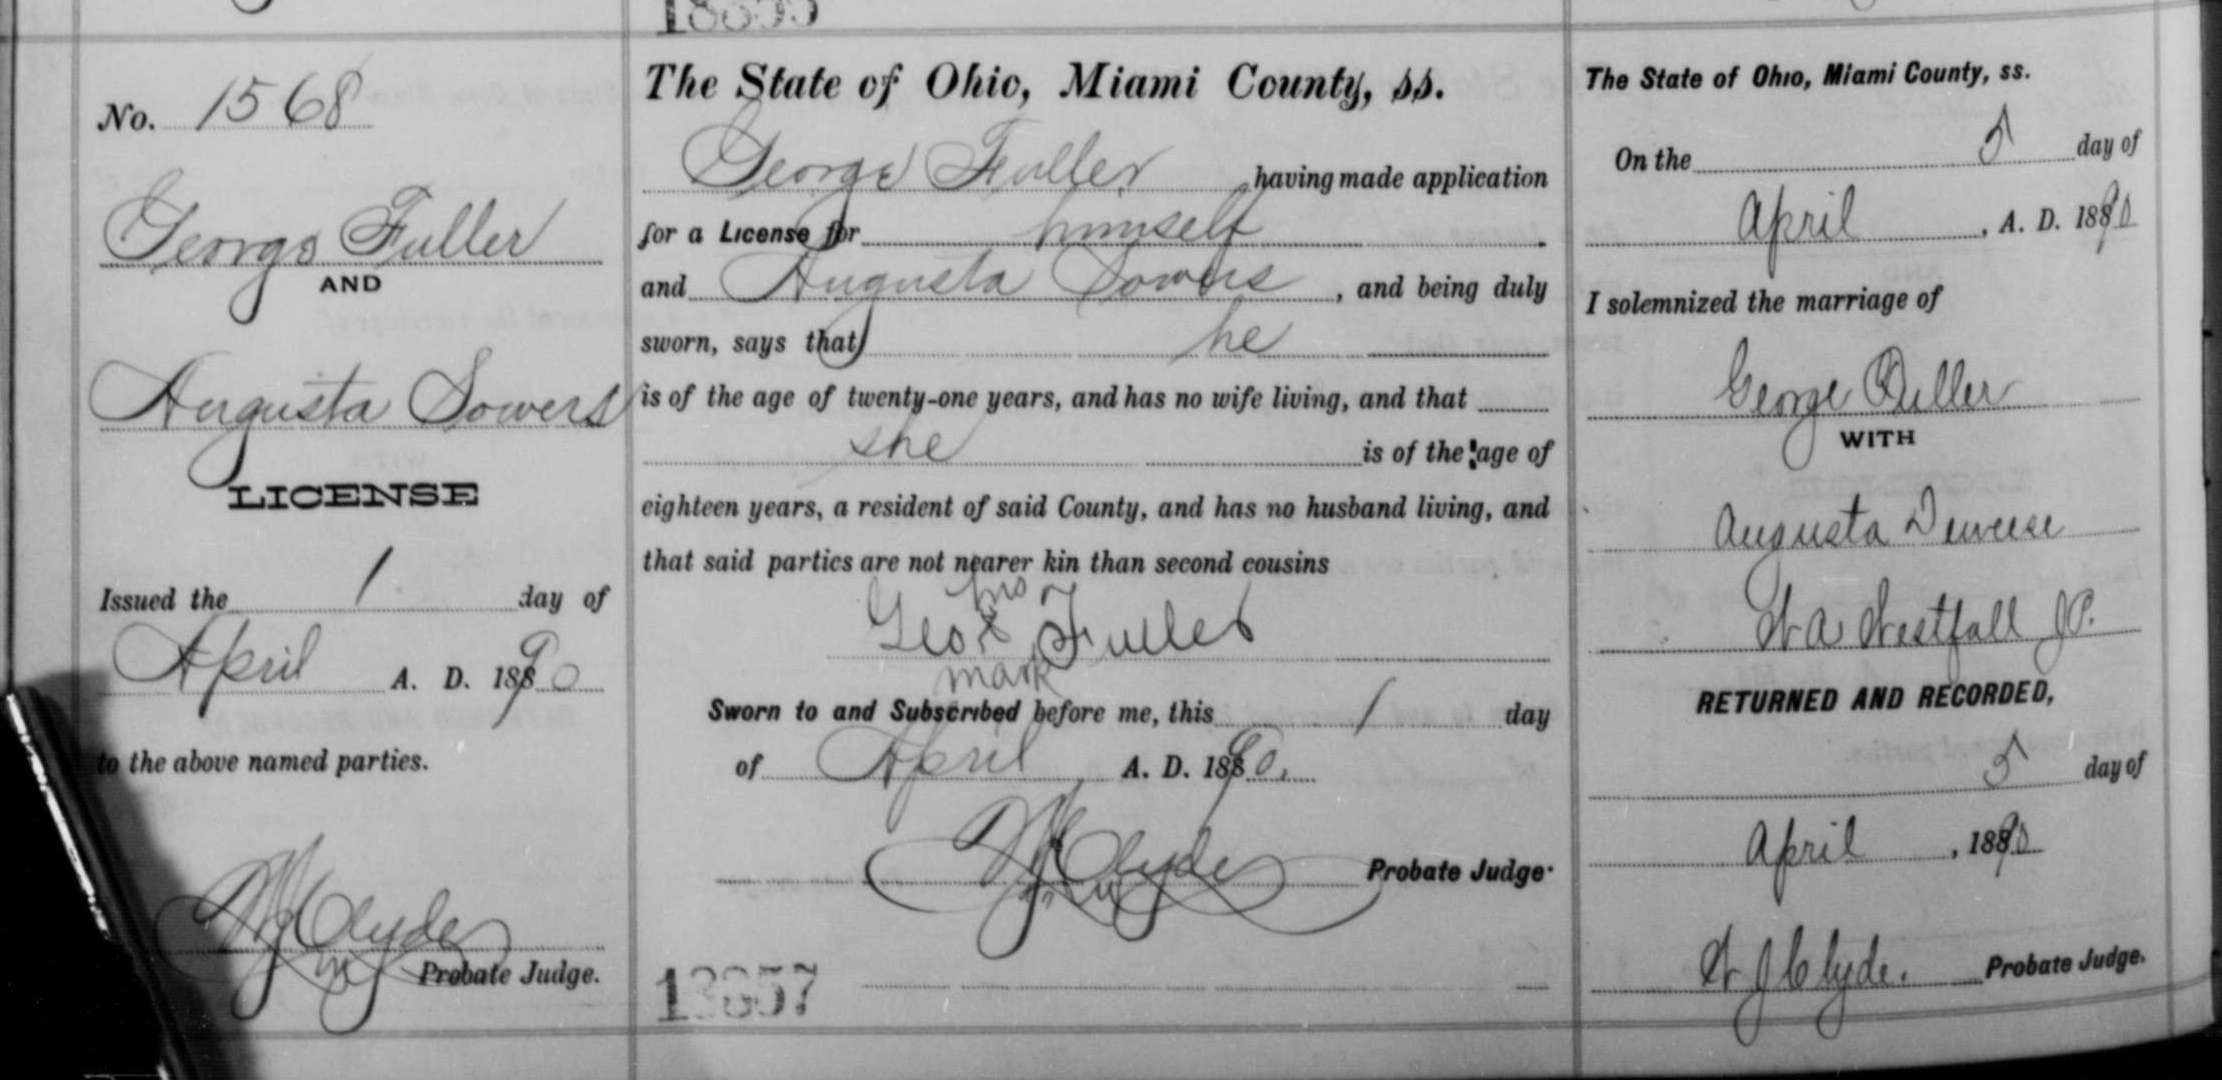 No. 1568
George Fuller
AND
Augusta Sowers
LICENSE
Issued the 1 day of
April A. D. 1890
to the above named parties.
W J Clyde
Probate Judge.
The State of Ohio, Miami County, ss.
George Fuller having made application
for a License for himself
and Augusta Sowers, and being duly
sworn, says that he
is of the age of twenty-one years, and has no wife living, and that
she is of the age of
eighteen years, a resident of said County, and has no husband living, and
that said parties are not nearer kin than second cousins
his
Geo x Fuller
mark
Sworn to and Subscribed before me, this 1 day
of April A. D. 1890.
W J Clyde Probate Judge.
13357
The State of Ohio, Miami County, ss.
On the 5 day of
April, A. D. 1890
I solemnized the marriage of
George Fuller
WITH
Augusta Deweese
W A Westfall J P.
RETURNED AND RECORDED,
5 day of
April, 1890
W J Clyde. Probate Judge.